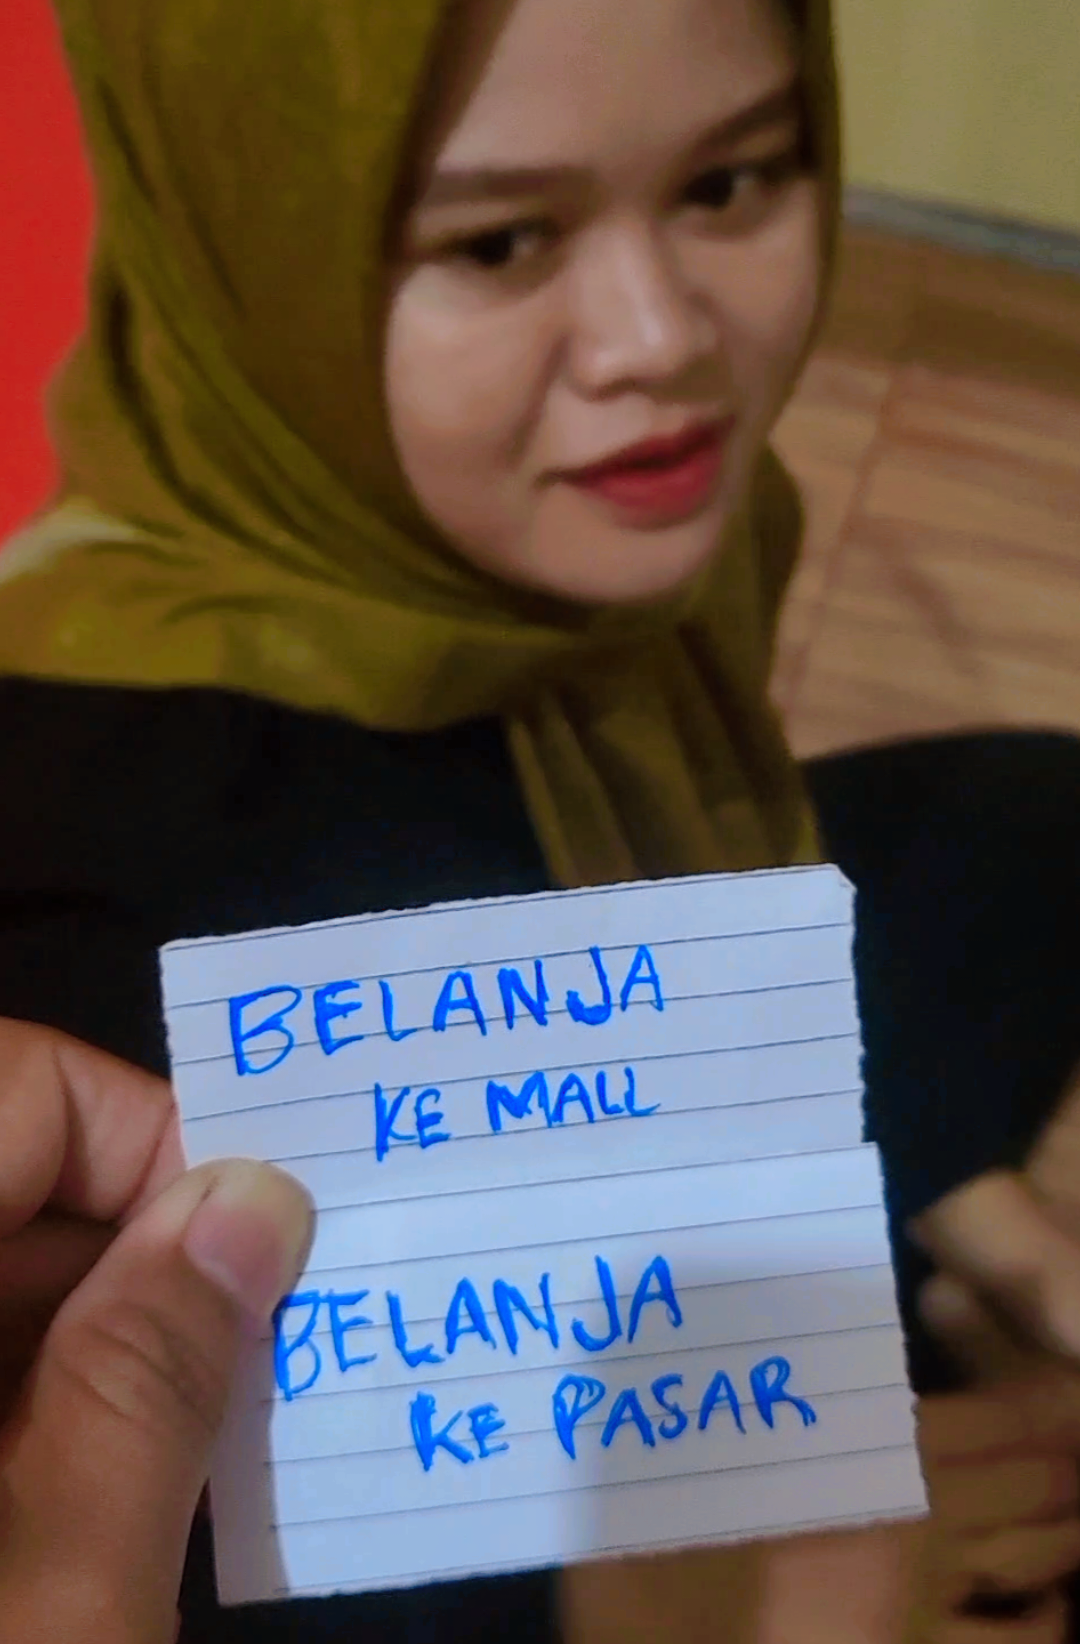 BELANJA
KE MALL
BELANJA
KE PASAR